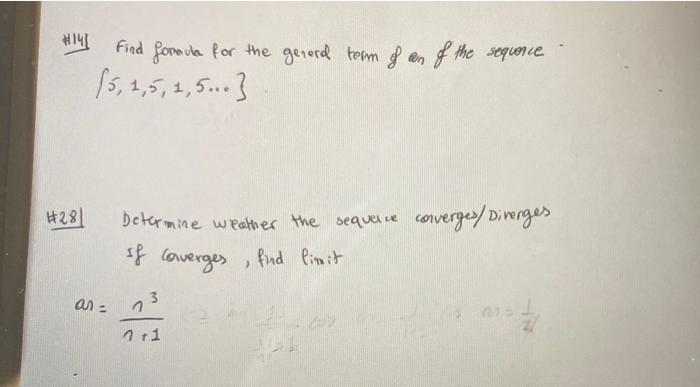 #14] Find formula for the general term of an of the sequence.
{5, 1, 5, 1, 5...}
#28] Determine weather the sequence converges/Diverges
If converges, find limit
an = n^3 / n+1